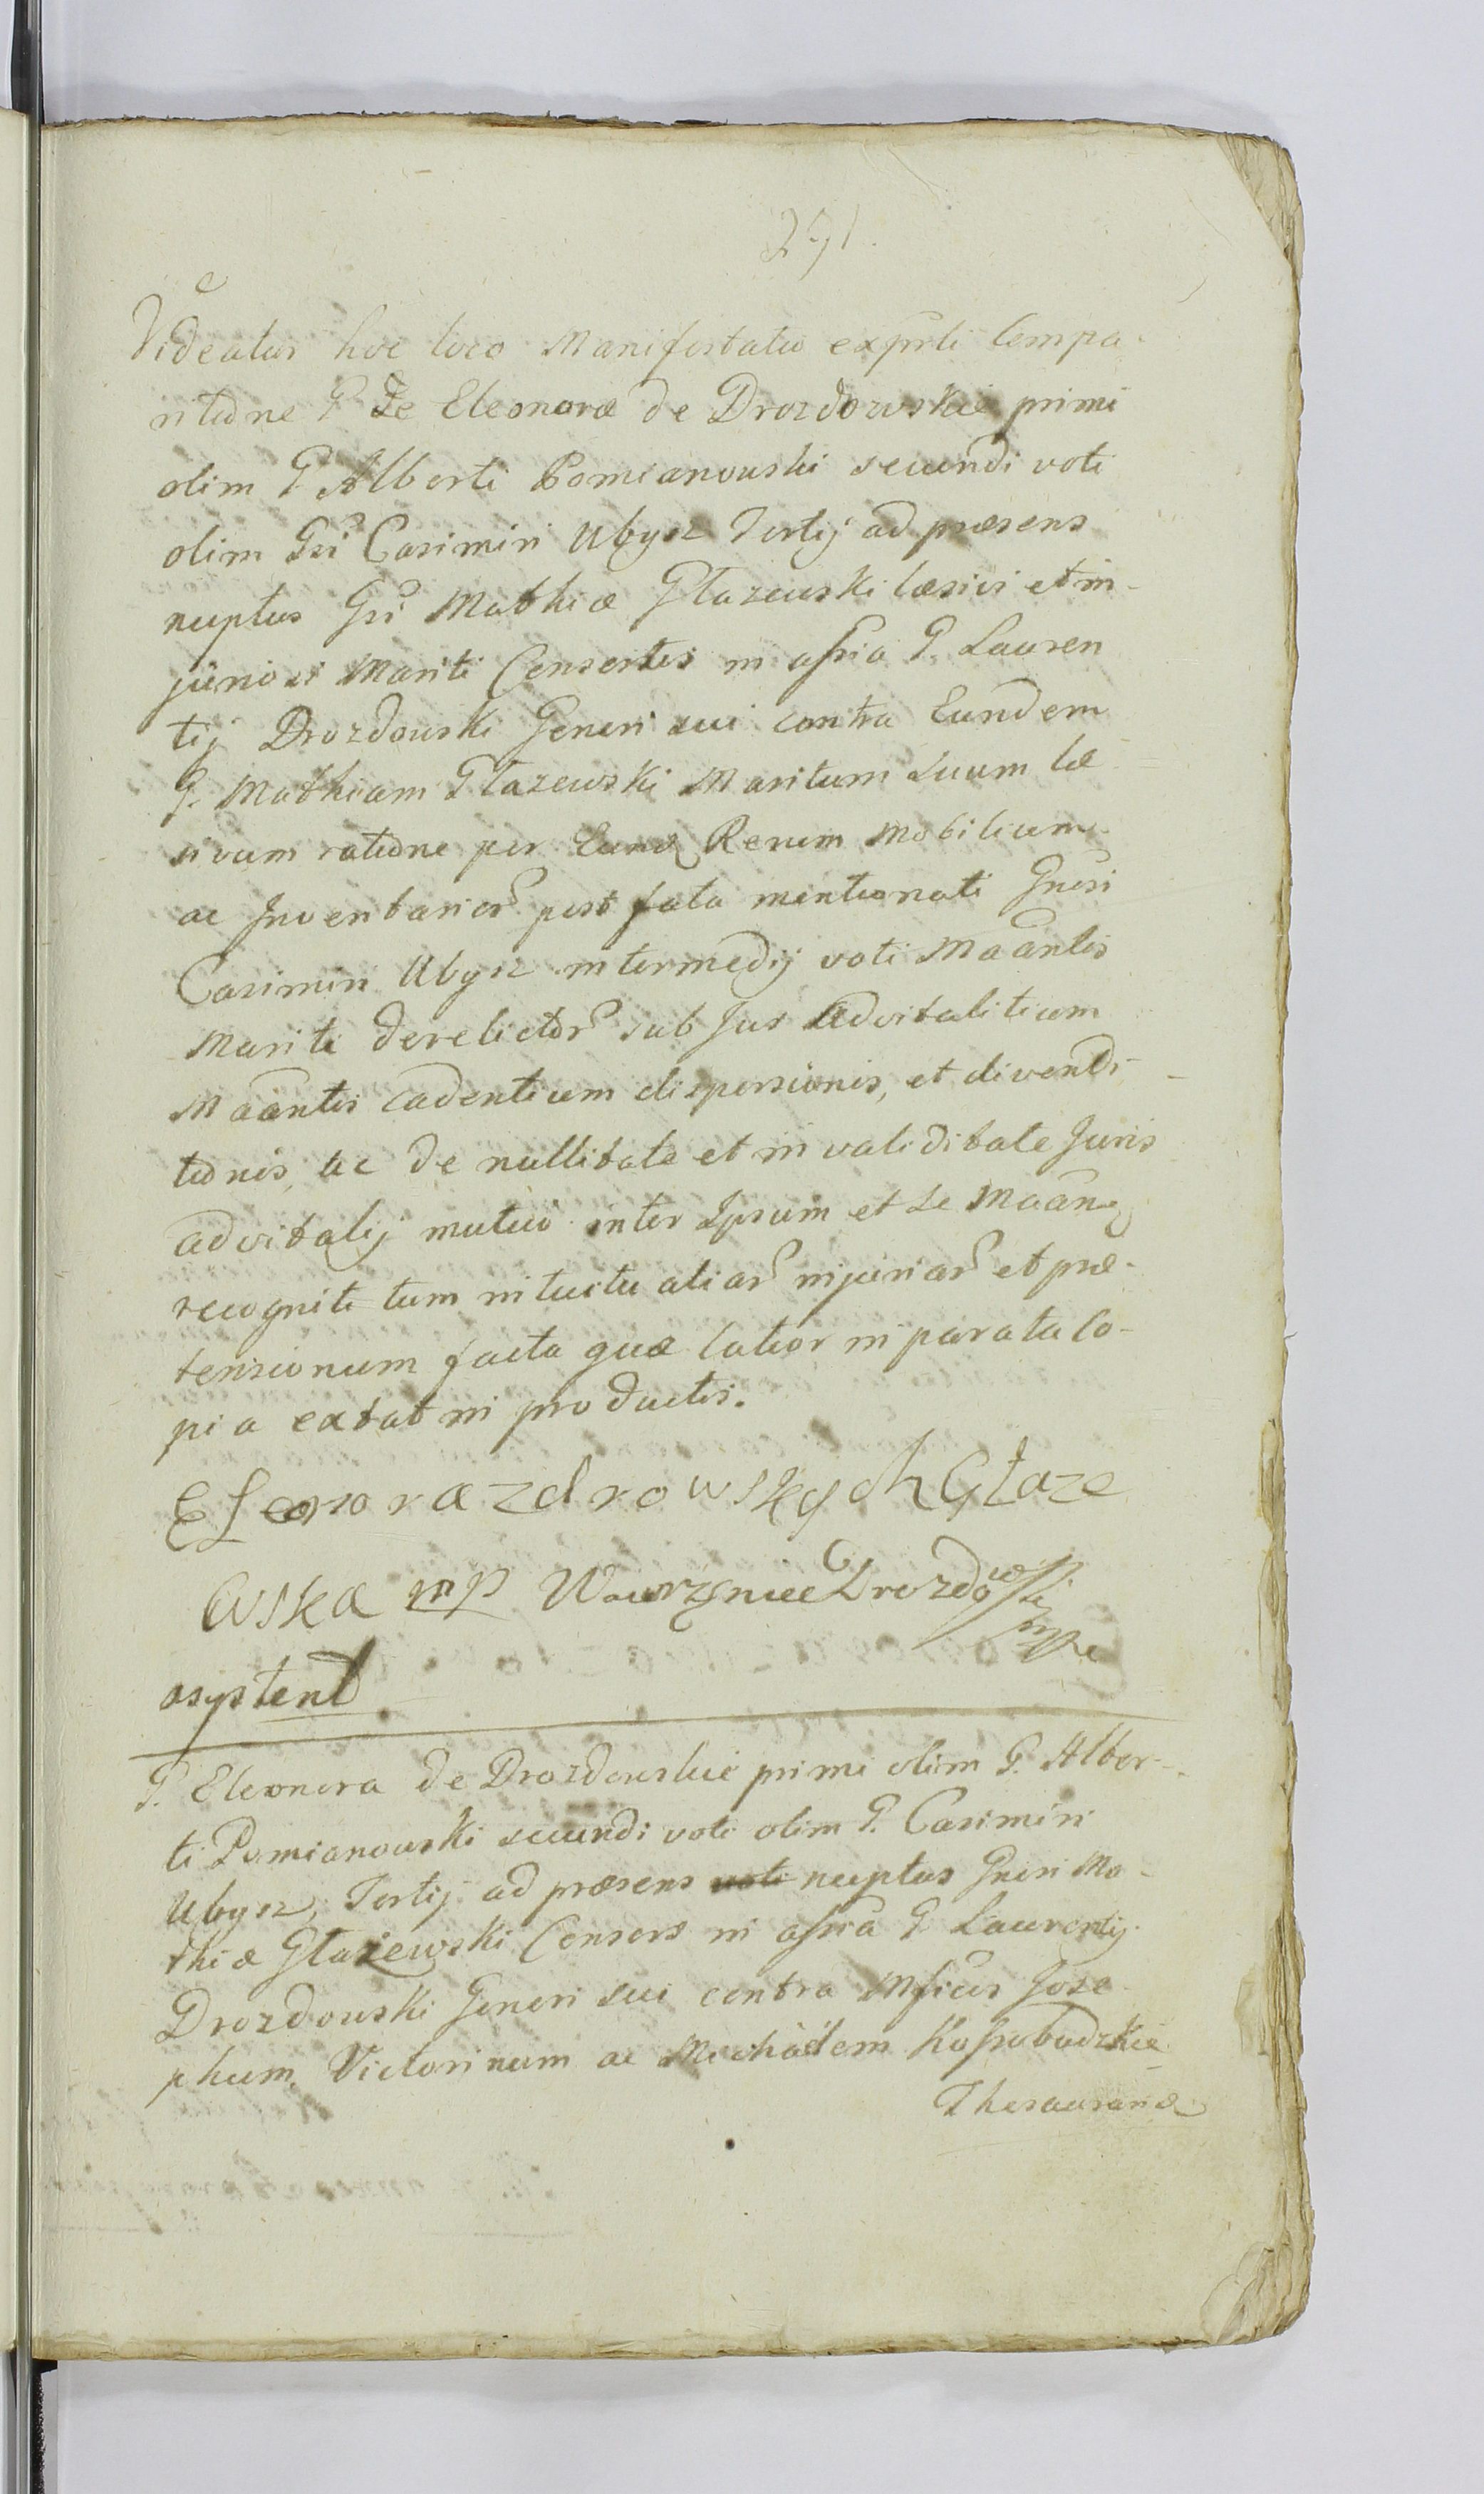 291.
Videatur hoc loco Manifestatio exprsti Compa-
ritione G De Eleonoræ de Drozdowskie primi
olim G Alberti Pomianouski secundi voti
olim Gsi Casimiri Ubysz Tertij ad præsens
nuptus Gsi Mathiæ Głazewski læsivi et in-
juriosi Mariti Consortis in assia G. Lauren
tij Drozdouski Generi sui contra Eundem
G. Mathiam Głazewski Maritum Suum læ
sivum ratione per Eund Rerum Mobilium
ac Inventarior post fata mentionati Gnesi
Casimiri Ubysz intermedij voti Maantis
Mariti derelictor sub Jus Advitalitium
Maantis cadentium dispersionis, et divendi-
tionis, ac de nullitate et invaliditate Juris
advitalij mutui inter Ipsum et Se Maan
recogniti tum intuitu aliar injuriar et præ-
tensionum facta quæ latior in parata Co-
pia extat in productis.
Eleonora z drowskych Głaze
wska mp Wawrzyniec Drozdowski
mp
asystent
G. Eleonora de Drozdouskie primi olim G. Alber-
ti Pomianouski secundi voti olim G. Casimiri
Ubysz, Tertij ad præsens voti nuptus Gnesi Ma-
thiæ Głażewski Consors in assia G Laurentij
Drozdouski Generi sui contra Mficos Jose
phum, Victorinum ac Michaelem Kossobudzkie
Thesauraria